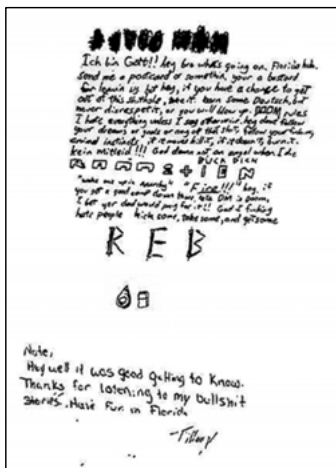 Ich bin Gott!! hey bro whats going on. Florida huh.
send me a postcard or somethin. your a bastard
for leavin us but hey, if you have a chance to get
out of this shithole, use it. learn some Deutsch, but
never disrespect it, or you will blow up. DOOM rules
I hate everything unless I say otherwise. hey dont follow
your dreams or goals or any of that shit, follow your fucking
animal instincts, if it moves kill it, if it doesn't burn it.
kein mitleid!!! God damn not an angel when I die
DUCK DICH
"wake me up in anarchy" "Fire!!!" hey, if
you get a good down there,
I bet your dad would pay for it!! God I fucking
hate people kick some, take some, and get some
R E B
Note,
Hey well it was good getting to know.
Thanks for listening to my bullshit
stories. Have fun in Florida